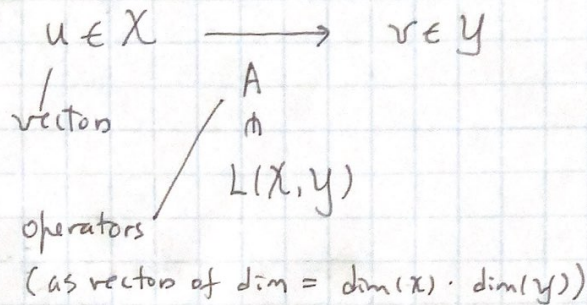 u ∈ X ⟶ v ∈ Y
A
vectors
⋔
L(X, Y)
operators
(as vectors of dim = dim(x) · dim(y))